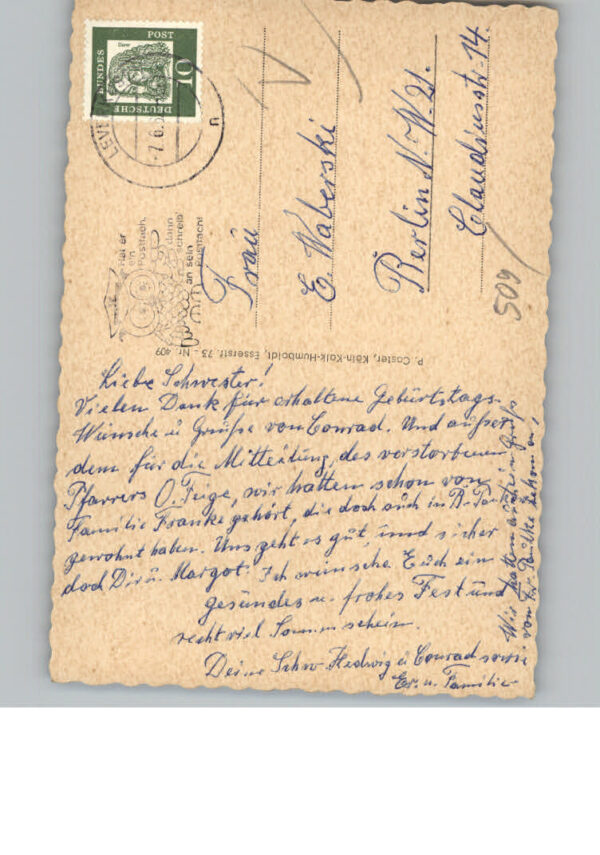 DEUTSCHE
BUNDES
POST
10
Dürer
LEVER
-7.6.6
n
hat er
ein
Postfach,
dann
schreib
an sein
Postfach!
Frau
E. Waberski
Berlin N.W. 21.
Claudiusstr. 14.
509
P. Coster, Köln-Kalk-Humboldt, Esserstr. 73 - Nr. 409
Liebe Schwester!
Vielen Dank für erhaltene Geburtstags-
Wünsche u Grüße von Conrad. Und außer
dem für die Mitteilung, des verstorbenen
Pfarrers O. Feige, wir hatten schon von
Familie Franke gehört, die doch auch in B.
gewohnt haben. Uns geht es gut, und sicher
doch Dir u. Margot. Ich wünsche Euch ein
gesundes u. frohes Fest und
recht viel Sonnenschein.
Deine Schw. Hedwig u Conrad sowie
Er. u. Familie
Wir hatten auch ein Gruß
von Fr. bekommen,